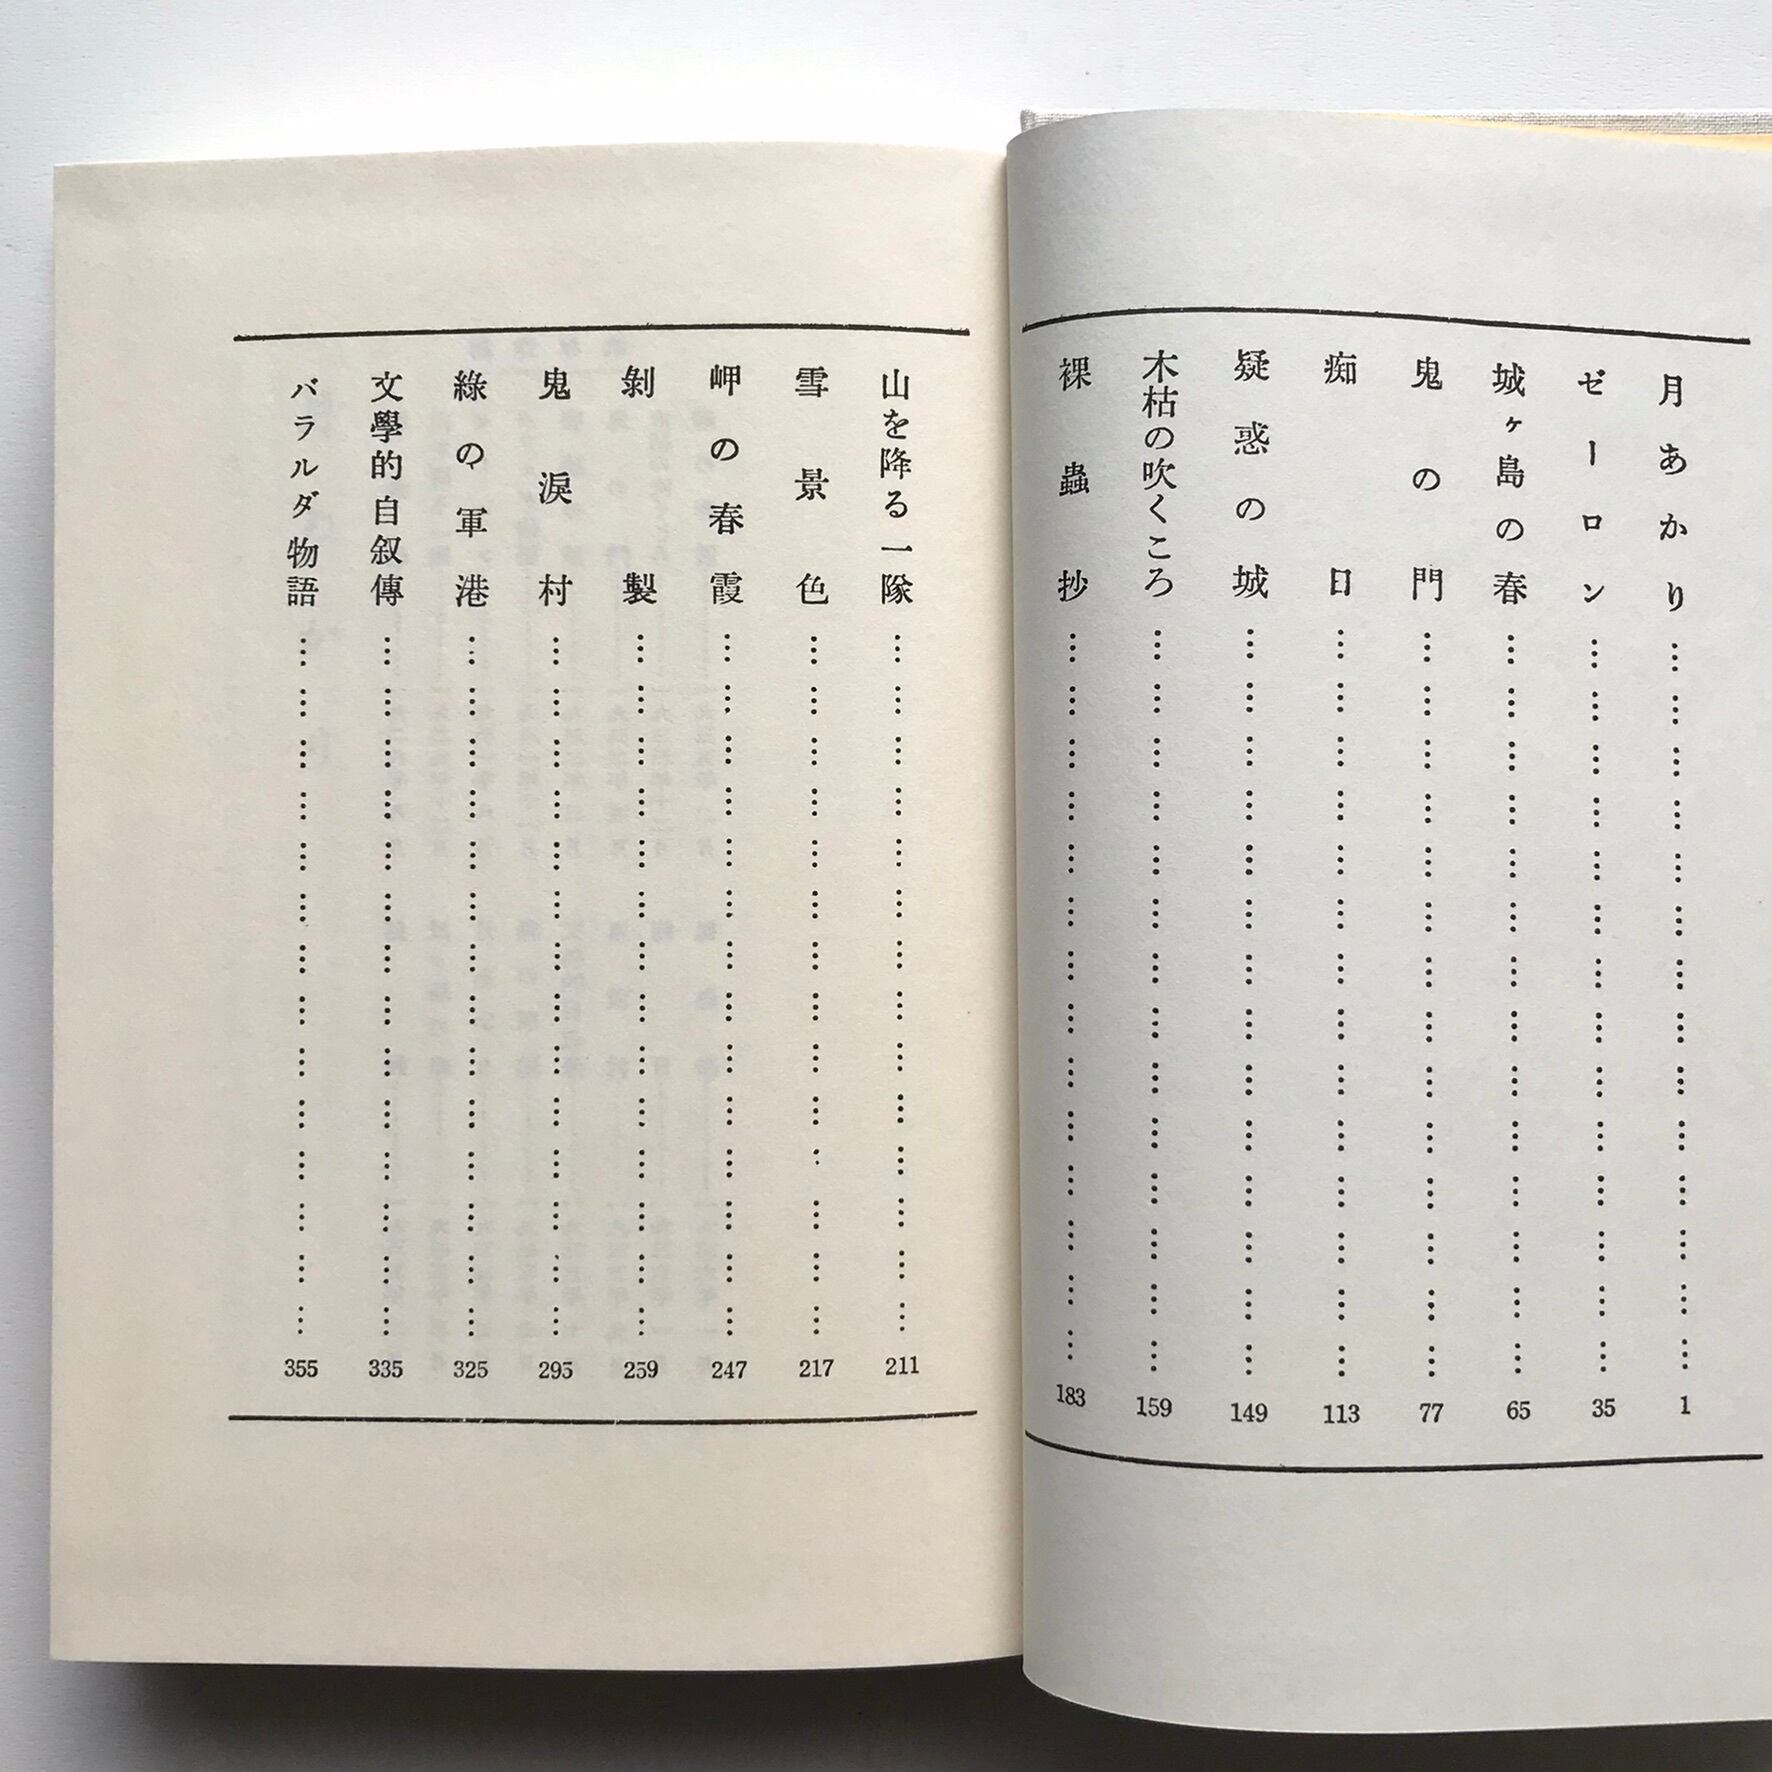 月あかり……1
ゼーロン……35
城ヶ島の春……65
鬼の門……77
痴日……113
疑惑の城……149
木枯の吹くころ……159
裸蟲抄……183
山を降る一隊……211
雪景色……217
岬の春霞……247
剝製……259
鬼涙村……295
綠の軍港……325
文學的自叙傳……335
バラルダ物語……355